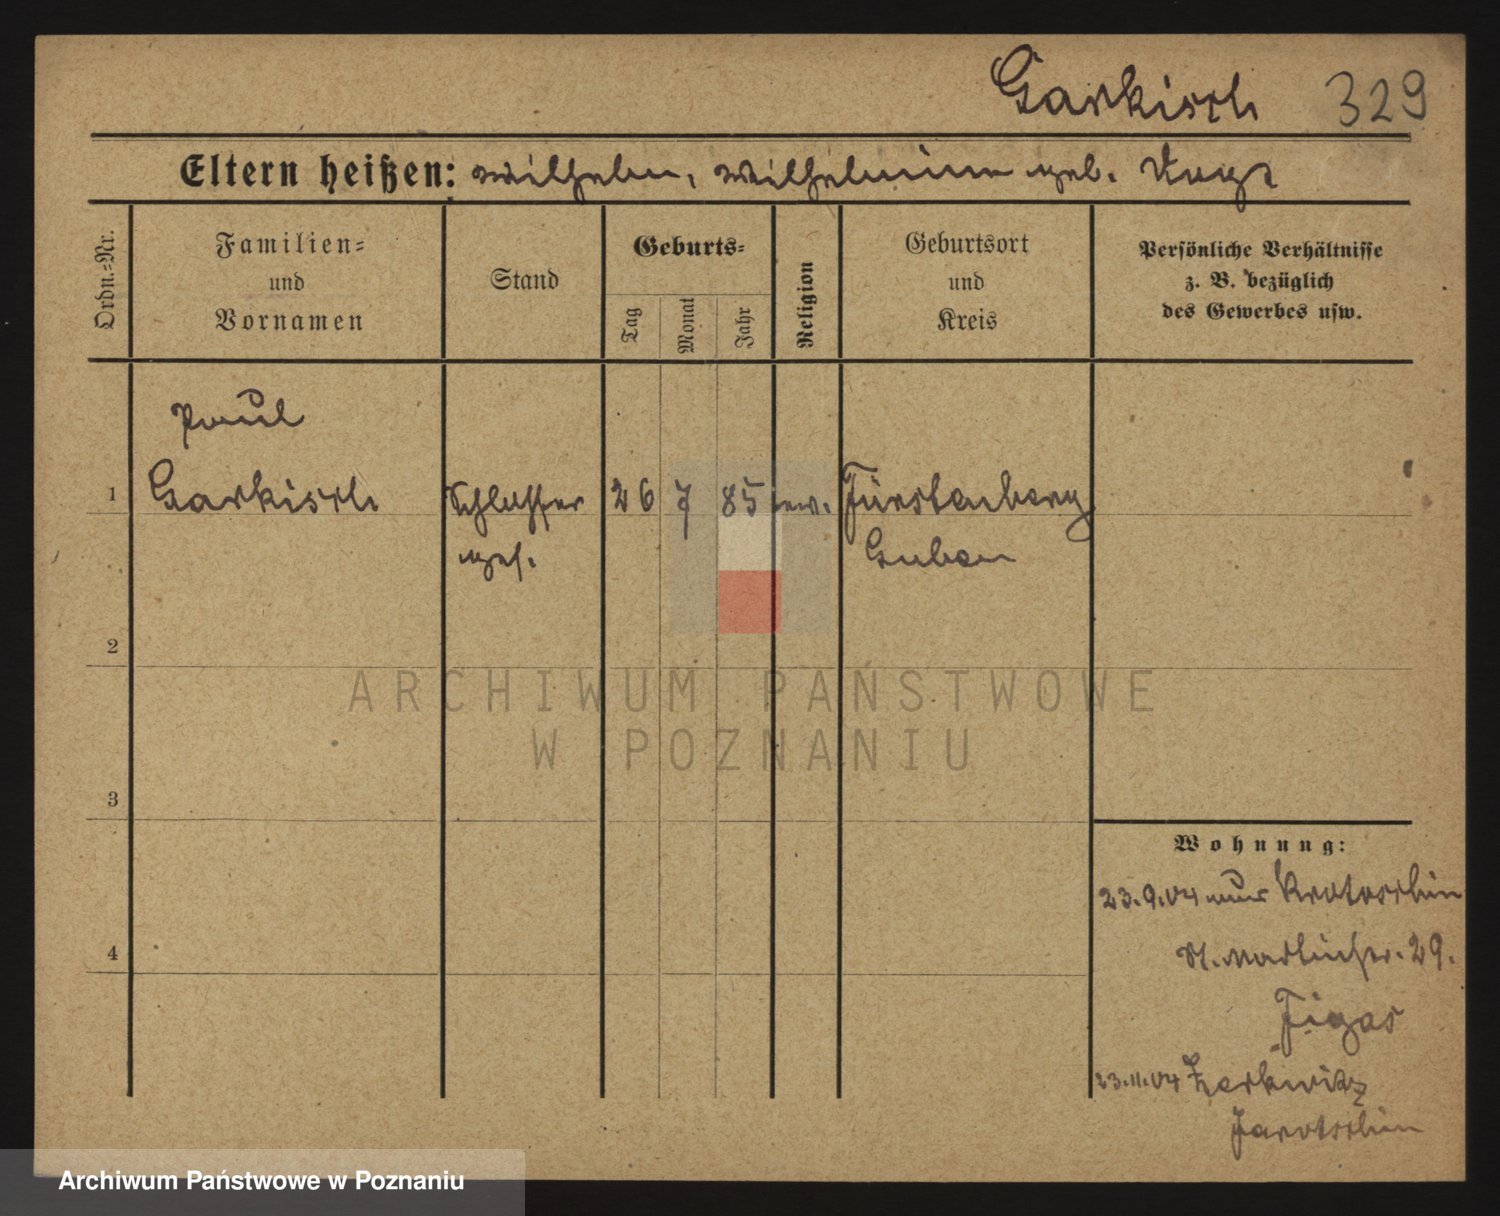 Garkisch 329
Eltern heißen: Wilhelm, Wilhelmine geb. Vogt
Ordn.=Nr.
Familien=
und
Vornamen
Stand
Geburts=
Tag
Monat
Jahr
Religion
Geburtsort
und
Kreis
Persönliche Verhältnisse
z. B. bezüglich
des Gewerbes usw.
Paul
1 Garkisch Schlosser 26 7 85 ev. Fürstenberg
ges. Guben
2
ARCHIWUM PAŃSTWOWE
W POZNANIU
3
Wohnung:
23.9.04 aus Krotoschin
St. Martinstr. 29.
4
Figas
23.11.04 Zerkwitz
Jarotschin
Archiwum Państwowe w Poznaniu